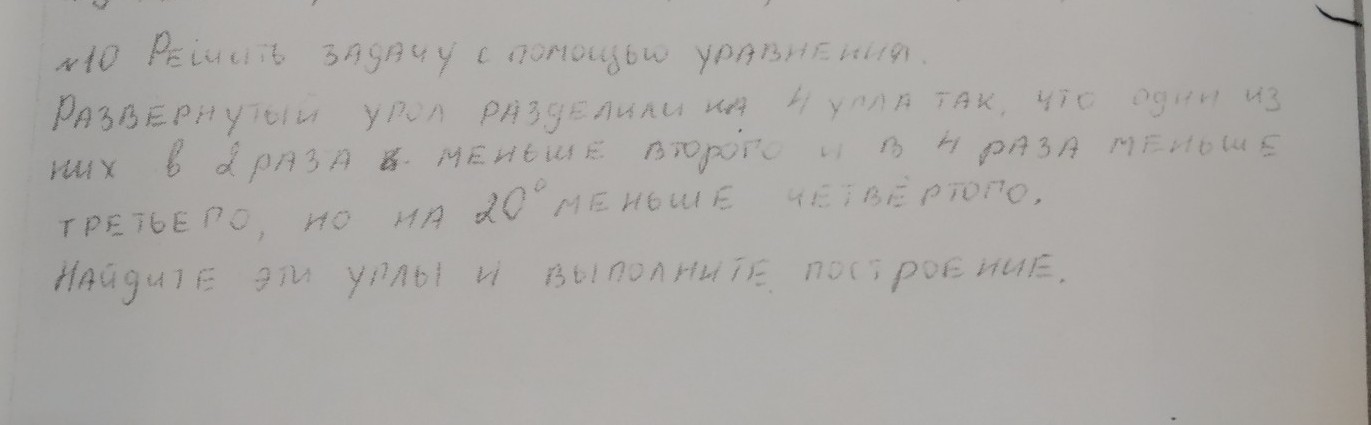 №10 Решить задачу с помощью уравнения.
Развёрнутый угол разделили на 4 угла так, что один из
них в 2 раза меньше второго и в 4 раза меньше
третьего, но на 20° меньше четвёртого.
Найдите эти углы и выполните построение.